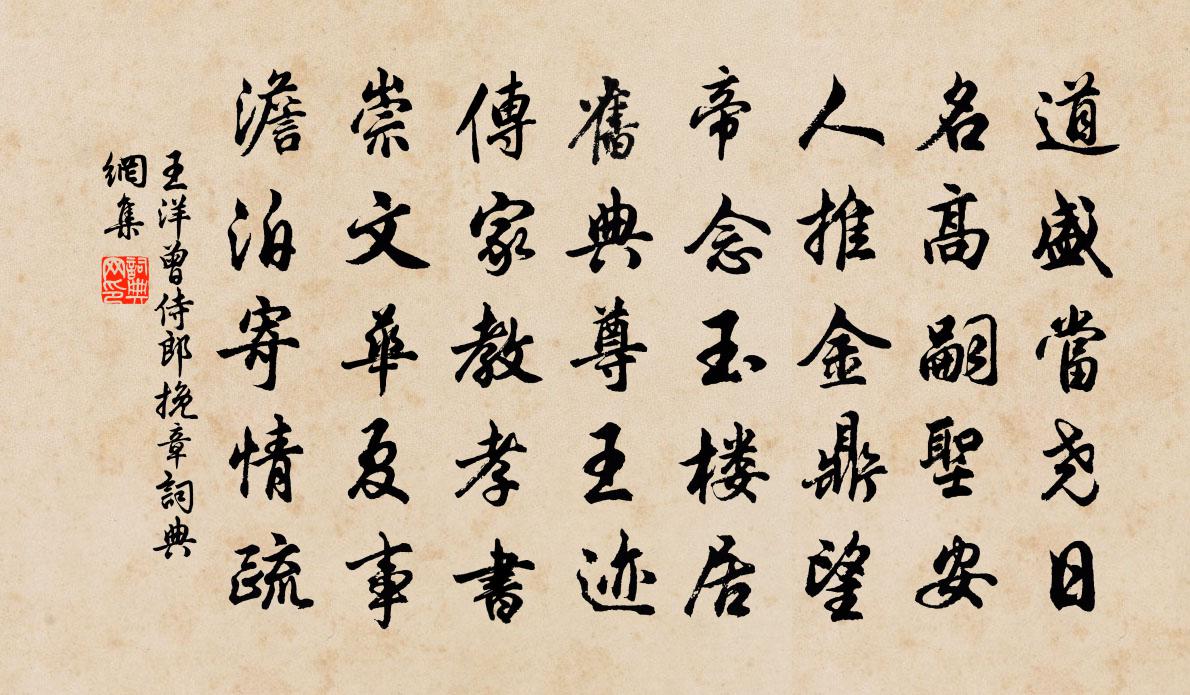 道盛當尧日
名高嗣聖安
人推金鼎望
帝念玉楼居
舊典尊王迹
傳家教孝書
崇文華夏事
澹泊寄情疏
王洋曾侍郎挽章詞典
網集
詞典
网印